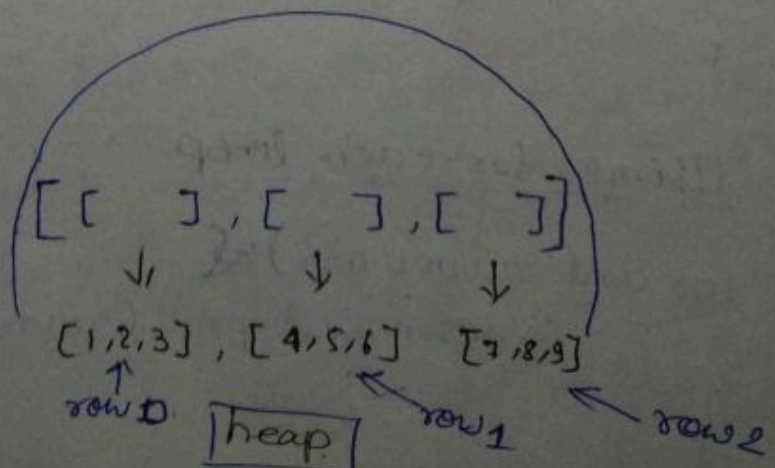 [ [ ] , [ ] , [ ] ]
[1,2,3] , [4,5,6] [7,8,9]
row 0 row 1 row 2
heap